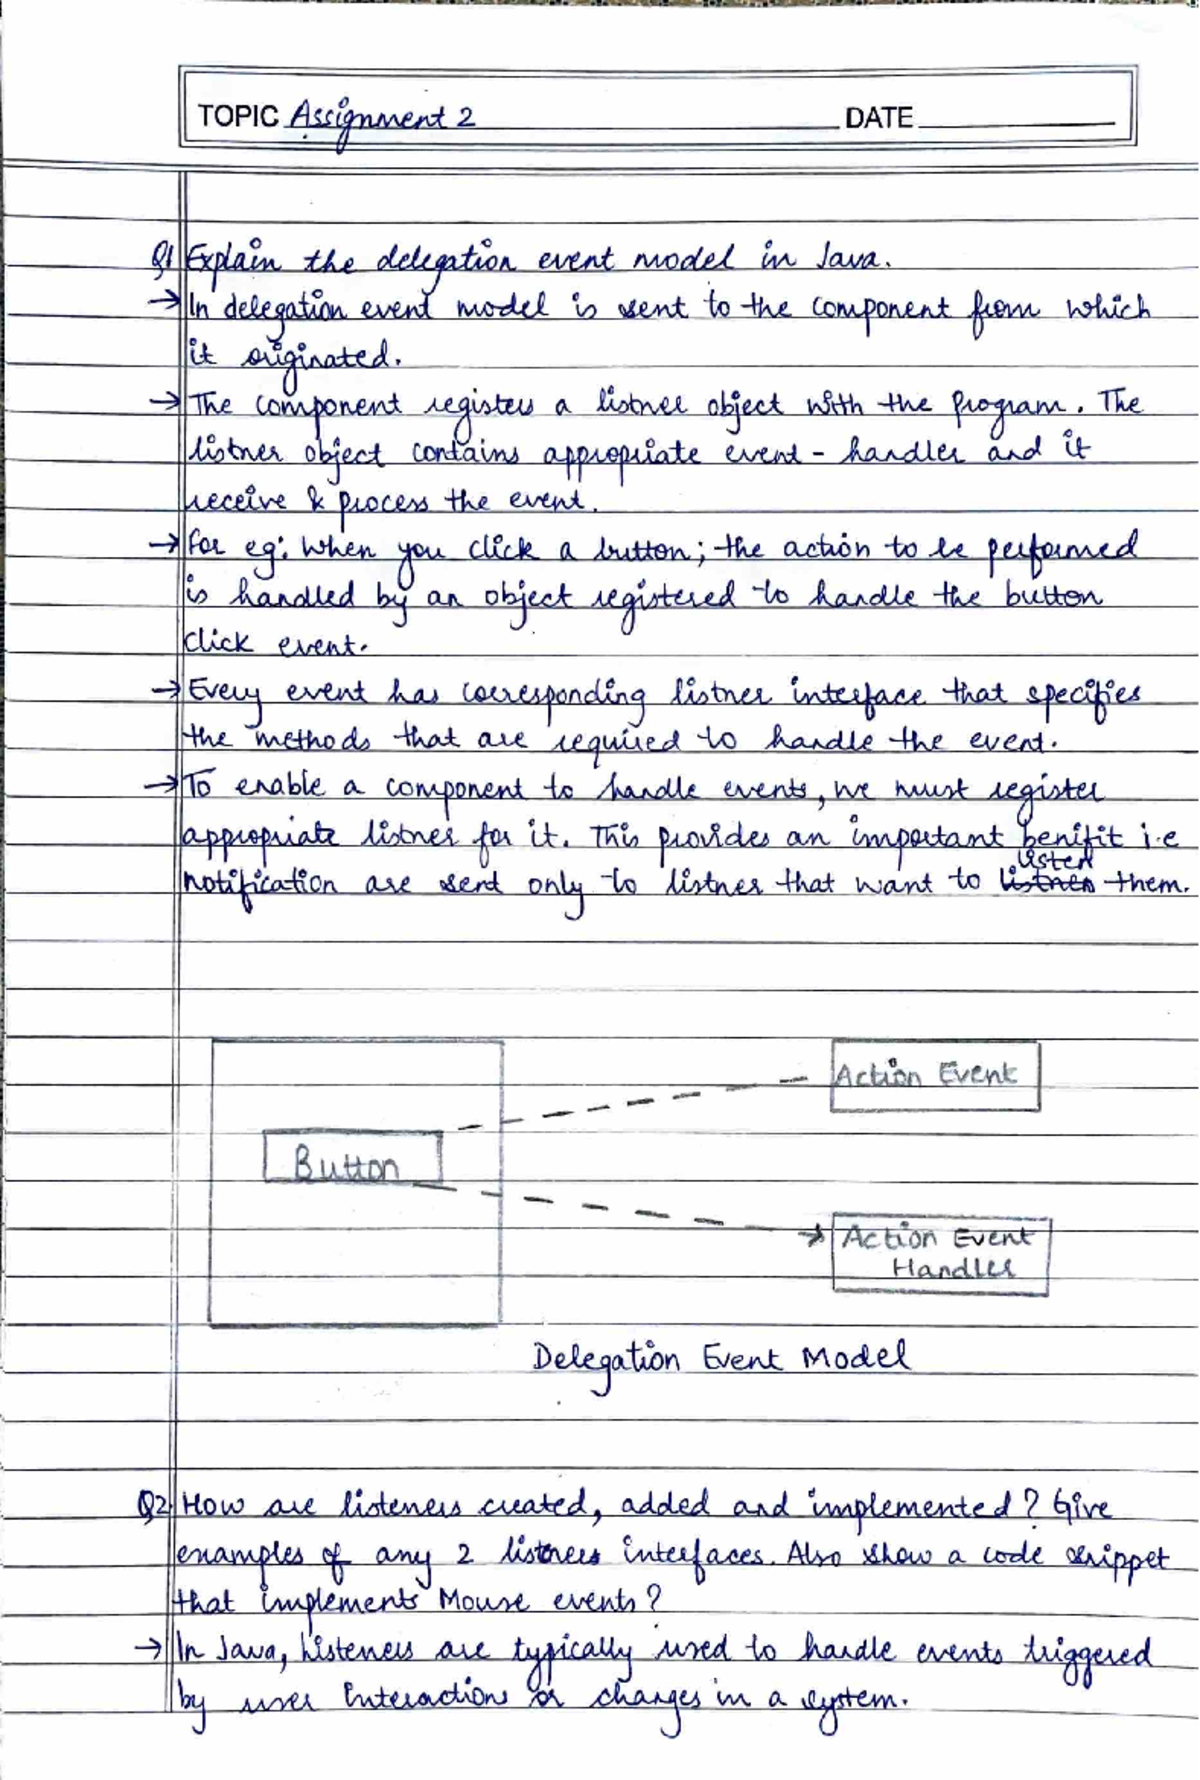 TOPIC Assignment 2 DATE
Q1 Explain the delegation event model in Java.
→ In delegation event model is sent to the component from which
it originated.
→ The component registers a listner object with the program. The
listner object contains appropriate event - handler and it
receive & process the event.
→ For eg: When you click a button; the action to be performed
is handled by an object registered to handle the button
click event.
→ Every event has corresponding listner interface that specifies
the methods that are required to handle the event.
→ To enable a component to handle events, we must register
appropriate listner for it. This provides an important benifit i.e
listen
notification are sent only to listner that want to listner them.
Action Event
Button
Action Event
Handler
Delegation Event Model
Q2 How are listeners created, added and implemented? Give
examples of any 2 listners interfaces. Also show a code snippet
that implements Mouse events?
→ In Java, listeners are typically used to handle events triggered
by user Interactions or changes in a system.